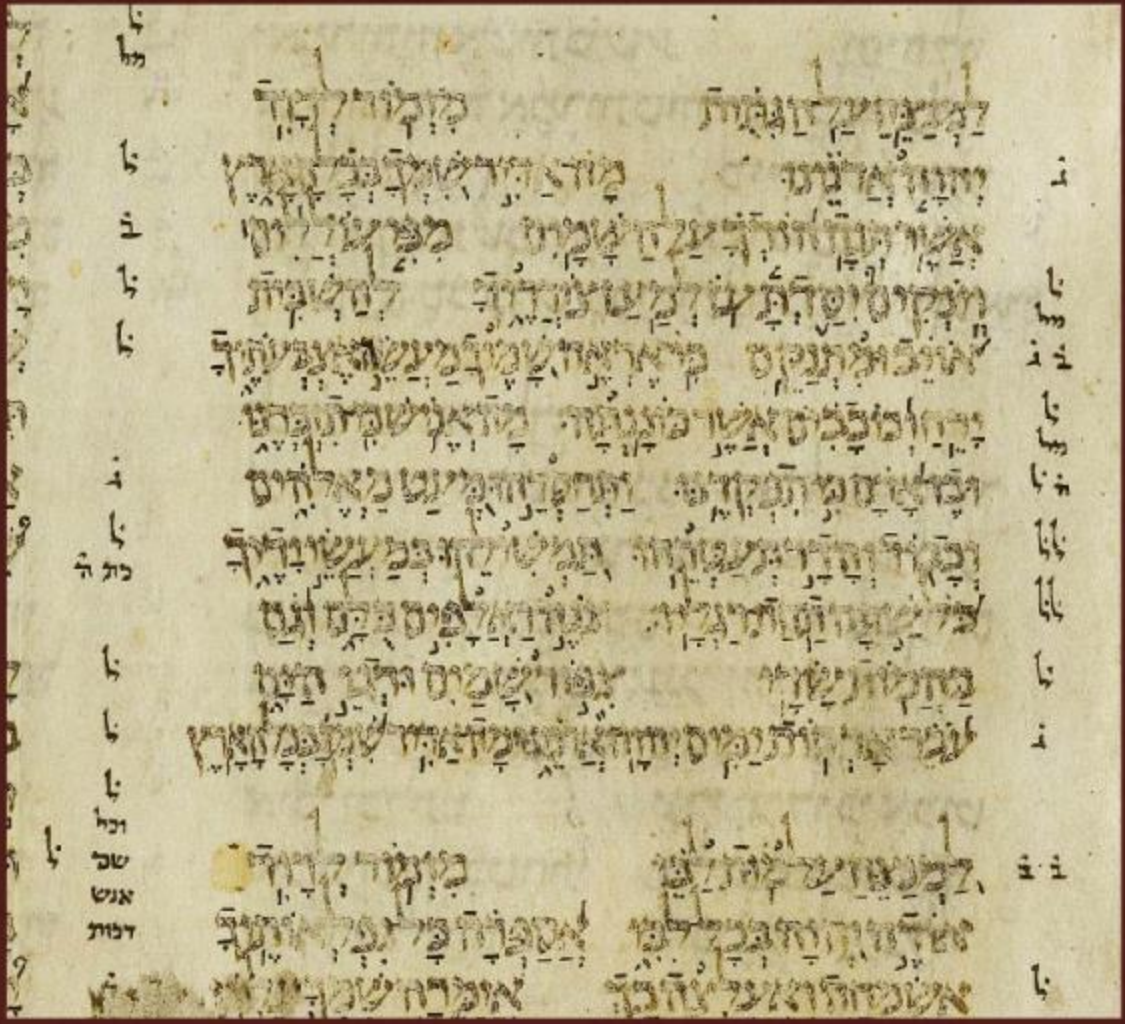 למנצח על הגתית מזמור לדוד
יהוה אדנינו מה אדיר שמך בכל הארץ
אשר תנה הודך על השמים מפי עוללים
וינקים יסדת עז למען צורריך להשבית
אויב ומתנקם כי אראה שמיך מעשה אצבעתיך
ירח וכוכבים אשר כוננתה מה אנוש כי תזכרנו
ובן אדם כי תפקדנו ותחסרהו מעט מאלהים
וכבוד והדר תעטרהו תמשילהו במעשי ידיך
כל שתה תחת רגליו צנה ואלפים כלם וגם
בהמות שדי צפור שמים ודגי הים
עבר ארחות ימים יהוה אדנינו מה אדיר שמך בכל הארץ
למנצח על מות לבן מזמור לדוד
אודה יהוה בכל לבי אספרה כל נפלאותיך
אשמחה ואעלצה בך אזמרה שמך עליון
כת ה
וכל
של
אנש
דמות